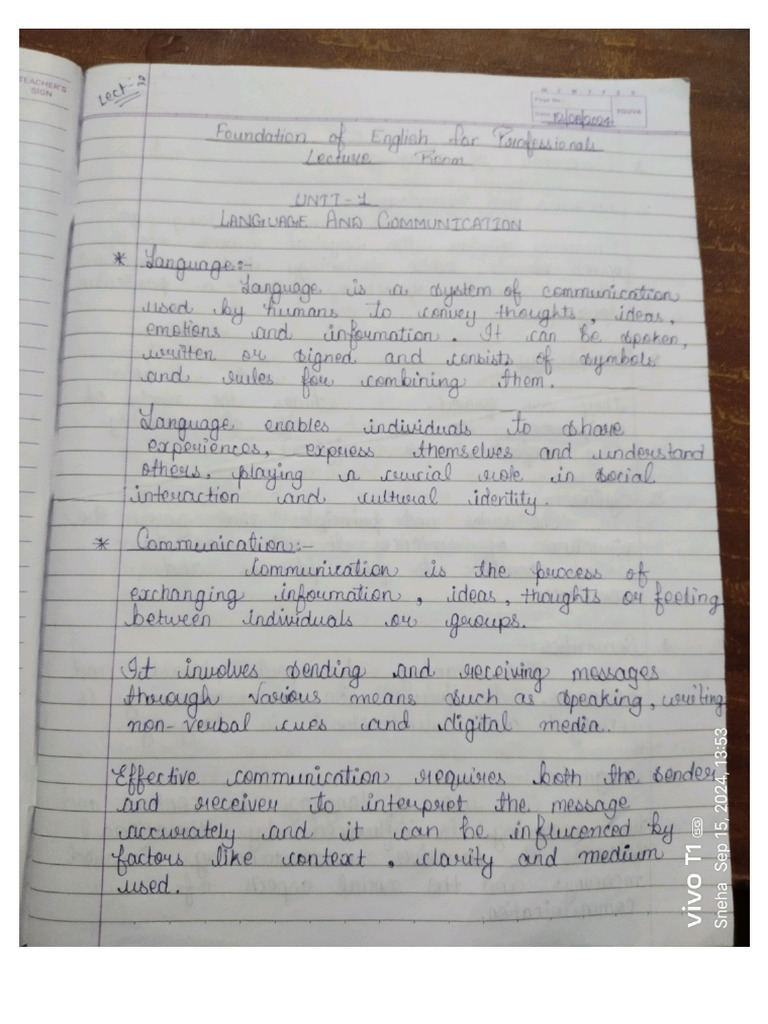 TEACHER'S
SIGN
Lect:-
Page No.:
12/08/2024
YOUVA
Foundation of English for Professionals
Lecture Room
UNIT-1
LANGUAGE AND COMMUNICATION
* Language:-
Language is a system of communication
used by humans to convey thoughts, ideas,
emotions and information. It can be spoken,
written or signed and consists of symbols
and rules for combining them.
Language enables individuals to share
experiences, express themselves and understand
others, playing a crucial role in social
interaction and cultural identity.
* Communication:-
Communication is the process of
exchanging information, ideas, thoughts or feeling
between individuals or groups.
It involves sending and receiving messages
through various means such as speaking, writing
non-verbal cues and digital media.
Effective communication requires both the sender
and receiver to interpret the message
accurately and it can be influenced by
factors like context, clarity and medium
used.
vivo T1 5G
Sneha Sep 15, 2024, 13:53